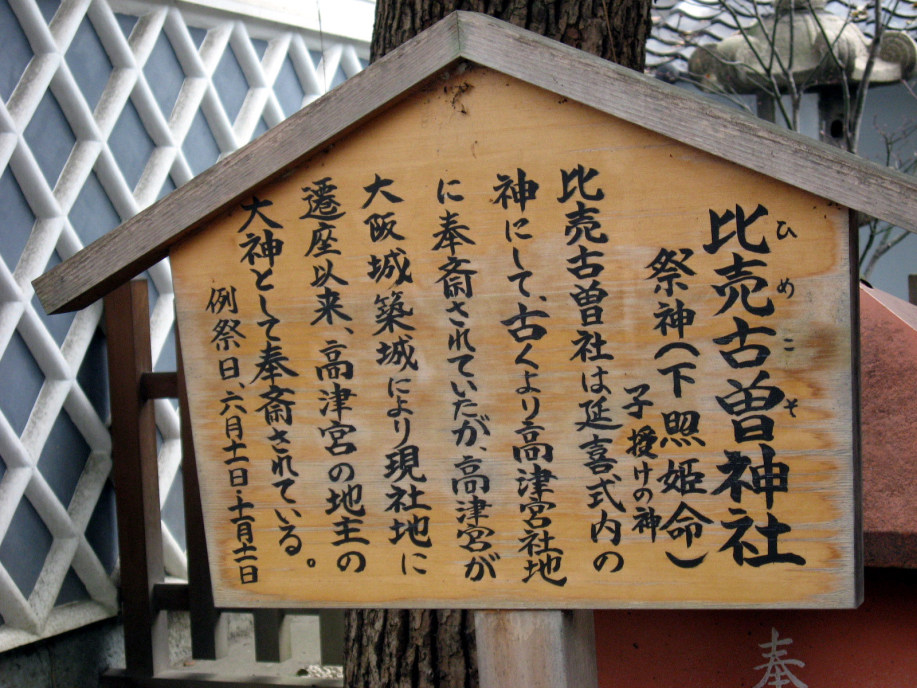 比売古曽神社
ひめこそ
祭神(下照姫命)
子授けの神
比売古曽社は延喜式内の
神にして、古くより高津宮社地
に奉斎されていたが、高津宮が
大阪城築城により現社地に
遷座以来、高津宮の地主の
大神として奉斎されている。
例祭日、六月十一日・十一月十一日
奉